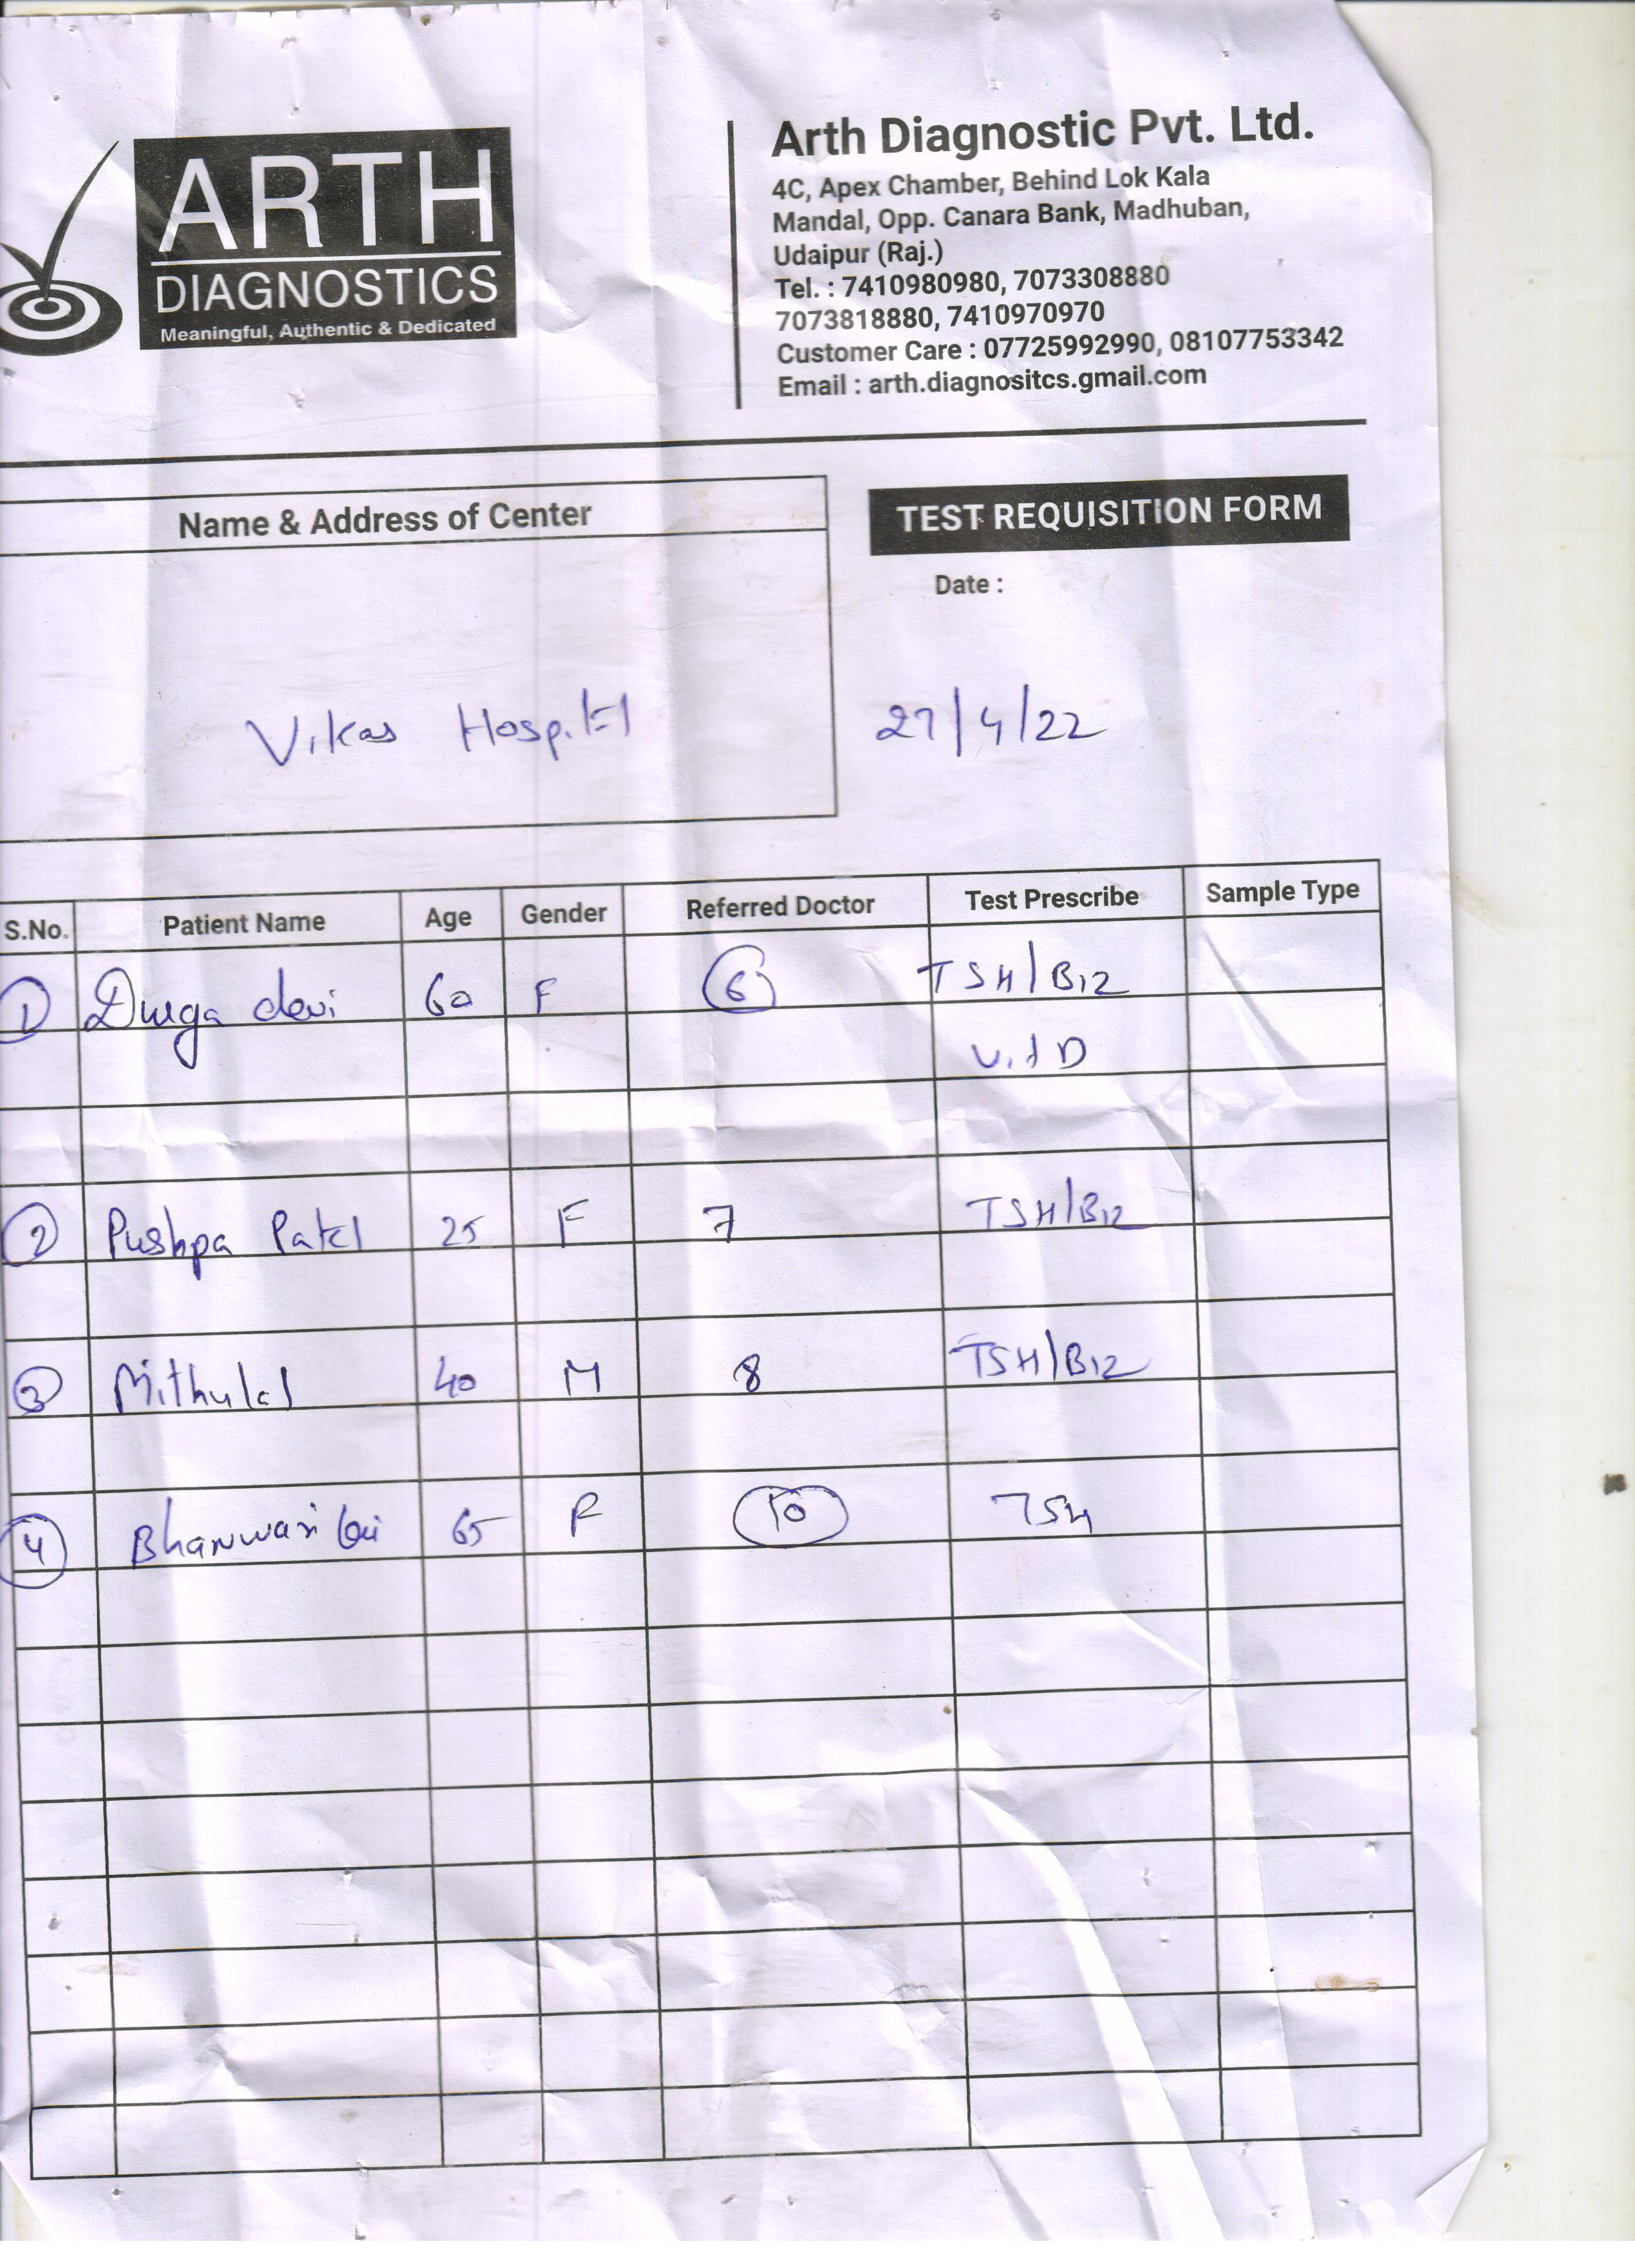 ARTH
DIAGNOSTICS
Meaningful, Authentic & Dedicated
Arth Diagnostic Pvt. Ltd.
4C, Apex Chamber, Behind Lok Kala
Mandal, Opp. Canara Bank, Madhuban,
Udaipur (Raj.)
Tel. : 7410980980, 7073308880
7073818880, 7410970970
Customer Care : 07725992990, 08107753342
Email : arth.diagnositcs.gmail.com
Name & Address of Center
TEST REQUISITION FORM
Date :
Vikas Hospital
27/4/22
S.No. Patient Name Age Gender Referred Doctor Test Prescribe Sample Type
1 Durga devi 60 F 6 TSH/B12
Vit D
2 Pushpa Patel 25 F 7 TSH/B12
3 Mithulal 40 M 8 TSH/B12
4 Bhanwari bai 65 F 10 TSH